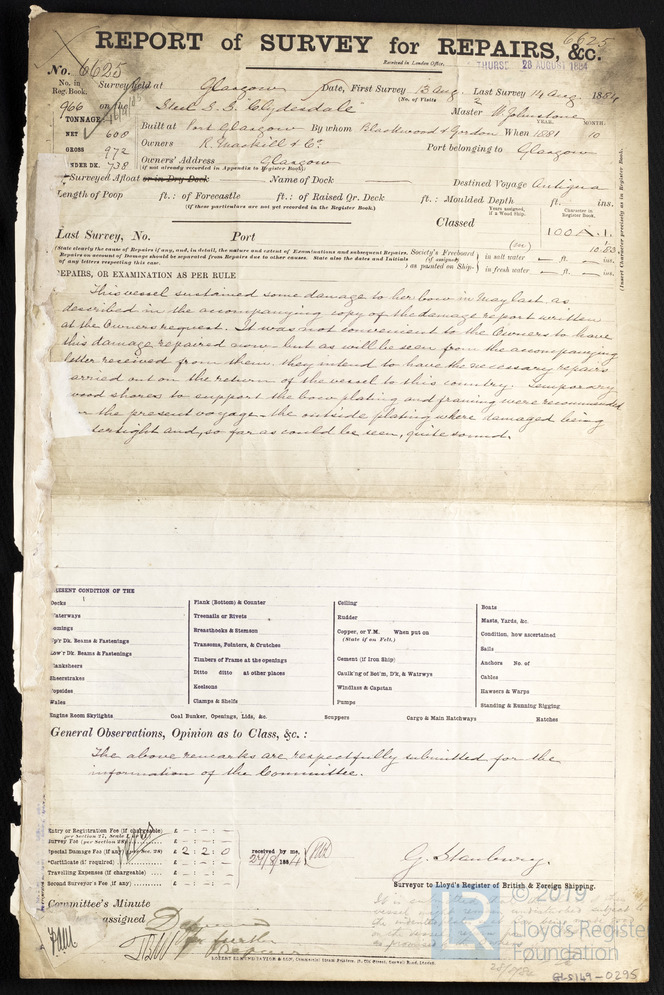 6625
REPORT of SURVEY for REPAIRS, &c.
Received in London Office.
THURS. 28 AUGUST 1884
No. 6625
No. in Reg. Book.
Survey held at Glasgow Date, First Survey 13 Aug. Last Survey 14 Aug 1884
(No. of Visits 2
966 on the Steel S.S. "Clydesdale" Master W. Johnstone
TONNAGE
YEAR. MONTH.
NET 608 Built at Port Glasgow By whom Blackwood & Gordon When 1881 10
GROSS 972 Owners Port belonging to Glasgow
UNDER DK. 738 Owners' Address Glasgow
(if not already recorded in Appendix to Register Book).
Surveyed Afloat or in Dry Dock Name of Dock Destined Voyage Antigua
Length of Poop ft.: of Forecastle ft.: of Raised Qr. Deck ft.: Moulded Depth ft. ins.
(If these particulars are not yet recorded in the Register Book.)
Years assigned, if a Wood Ship. Character in Register Book.
Classed 100A.1.
Last Survey, No. Port
10.83
(State clearly the cause of Repairs if any, and, in detail, the nature and extent of Examinations and subsequent Repairs.
Repairs on account of Damage should be separated from Repairs due to other causes. State also the dates and Initials
of any letters respecting this case.)
Society's Freeboard (if assigned) as painted on Ship.
in salt water ft. ins.
in fresh water ft. ins.
(Insert Character precisely as in Register Book.
EPAIRS, OR EXAMINATION AS PER RULE
This vessel sustained some damage to her bow in May last as
described in the accompanying copy of the damage report written
at the Owners request. It was not convenient to the Owners to have
this damage repaired now but as will be seen from the accompanying
letter received from them they intend to have the necessary repairs
arried out on the return of the vessel to this country. Temporary
wood shores to support the bow plating and framing were recommended
the present voyage, the outside plating where damaged being
tertight and, so far as could be seen, quite sound.
RESENT CONDITION OF THE
Decks
Waterways
Comings
Up'r Dk. Beams & Fastenings
Low'r Dk. Beams & Fastenings
Planksheers
Sheerstrakes
Topsides
Wales
Engine Room Skylights
Plank (Bottom) & Counter
Treenails or Rivets
Breasthooks & Stemson
Transoms, Pointers, & Crutches
Timbers of Frame at the openings
Ditto ditto at other places
Keelsons
Clamps & Shelfs
Coal Bunker, Openings, Lids, &c.
Ceiling
Rudder
Copper, or Y.M. When put on
(State if on Felt.)
Cement (if Iron Ship)
Caulk'ng of Bot'm, D'k, & Watrwys
Windlass & Capstan
Pumps
Scuppers
Cargo & Main Hatchways
Boats
Masts, Yards, &c.
Condition, how ascertained
Sails
Anchors No. of
Cables
Hawsers & Warps
Standing & Running Rigging
Hatches
General Observations, Opinion as to Class, &c. :
The above remarks are respectfully submitted for the
information of the Committee.
Entry or Registration Fee (if chargeable) £ - : - : -
per Section 27,
Survey Fee (per Section 28) £ - : - : -
Special Damage Fee (if any) (per Sec. 28) £ 2 : 2 : 0
*Certificate (if required) £ - : - : -
Travelling Expenses (if chargeable) £ - : - : -
Second Surveyor's Fee (if any) £ - : - : -
received by me,
27/8/1884
G. Stanbury.
Surveyor to Lloyd's Register of British & Foreign Shipping.
Committee's Minute
assigned
LR
© 2019
Lloyd's Register
Foundation
GLS149-0295